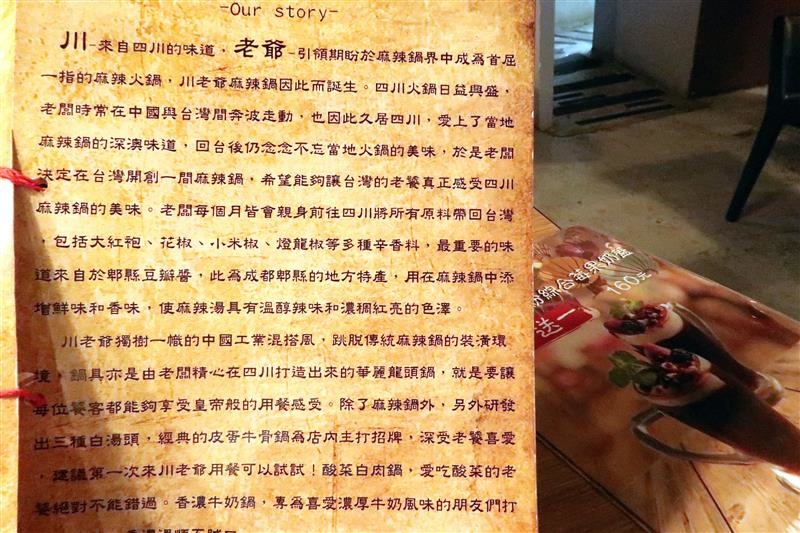 -Our story-
川-來自四川的味道，老爺-引領期盼於麻辣鍋界中成為首屈
一指的麻辣火鍋，川老爺麻辣鍋因此而誕生。四川火鍋日益興盛，
老闆時常在中國與台灣間奔波走動，也因此久居四川，愛上了當地
麻辣鍋的深澳味道，回台後仍念念不忘當地火鍋的美味，於是老闆
決定在台灣開創一間麻辣鍋，希望能夠讓台灣的老饕真正感受四川
麻辣鍋的美味。老闆每個月皆會親身前往四川將所有原料帶回台灣
，包括大紅袍、花椒、小米椒、燈龍椒等多種辛香料，最重要的味
道來自於郫縣豆瓣醬，此為成都郫縣的地方特產，用在麻辣鍋中添
增鮮味和香味，使麻辣湯具有溫醇辣味和濃稠紅亮的色澤。
川老爺獨樹一幟的中國工業混搭風，跳脫傳統麻辣鍋的裝潢環
境，鍋具亦是由老闆精心在四川打造出來的華麗龍頭鍋，就是要讓
每位饕客都能夠享受皇帝般的用餐感受。除了麻辣鍋外，另外研發
出三種白湯頭，經典的皮蛋牛骨鍋為店內主打招牌，深受老饕喜愛
，建議第一次來川老爺用餐可以試試！酸菜白肉鍋，愛吃酸菜的老
饕絕對不能錯過。香濃牛奶鍋，專為喜愛濃厚牛奶風味的朋友們打
綜合莓果奶蓋
160元
送一